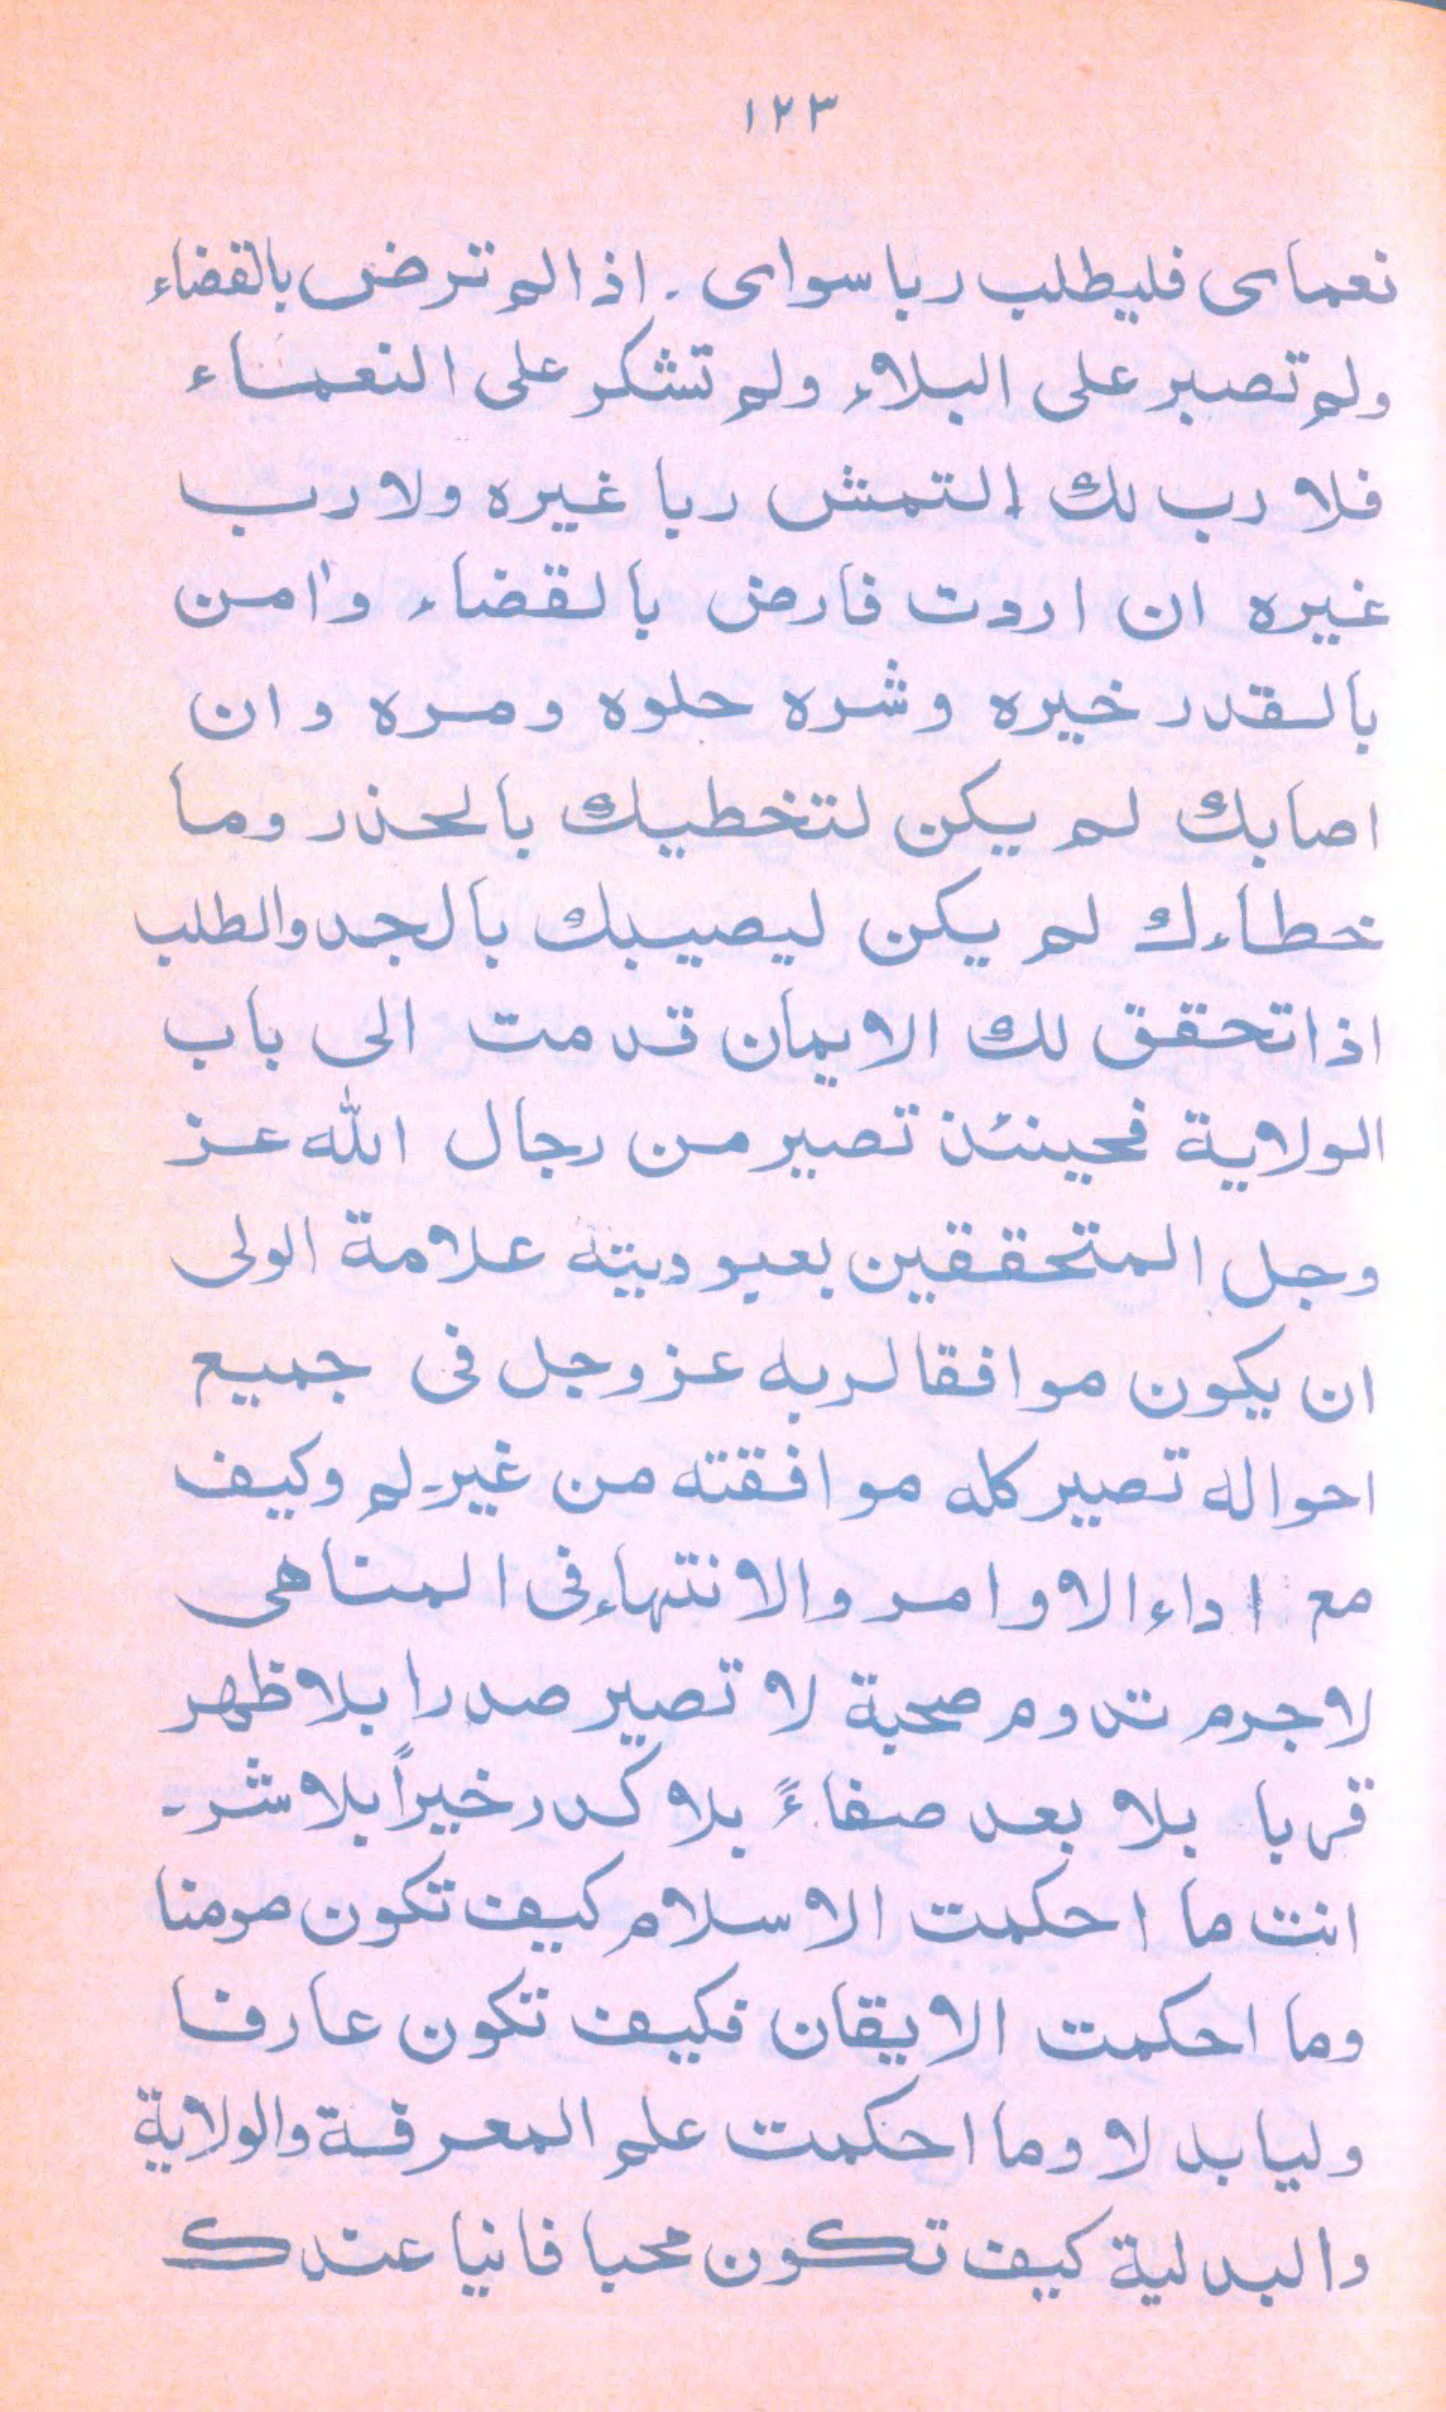 ١٢٣
نعمای فلیطلب ربا سوای . اذا لم ترض بالقضاء
ولم تصبر علی البلاء ولم تشکر علی النعماء
فلا رب لك إلتمش ربا غیره ولا رب
غیره ان اردت فارض بالقضاء وامن
بالقدر خیره وشره حلوه ومره وان
اصابك لم یکن لتخطیك بالحذر وما
خطاءك لم یکن لیصیبك بالجد والطلب
اذا تحقق لك الایمان قدمت الی باب
الولایة فحینئذ تصیر من رجال الله عز
وجل المتحققین بعبودیته علامة الولی
ان یکون موافقا لربه عز وجل فی جمیع
احواله تصیر کله موافقته من غیر لم وکیف
مع اداء الاوامر والانتهاء فی المناهی
لاجرم تدوم صحبة لا تصیر صدرا بلا ظهر
قربا بلا بعد صفاءً بلا کدر خیراً بلا شر۔
انت ما احکمت الاسلام کیف تکون مومنا
وما احکمت الایقان فکیف تکون عارفا
ولیا بدلا وما احکمت علم المعرفة والولایة
والبدلیة کیف تکون محبا فانیا عندك